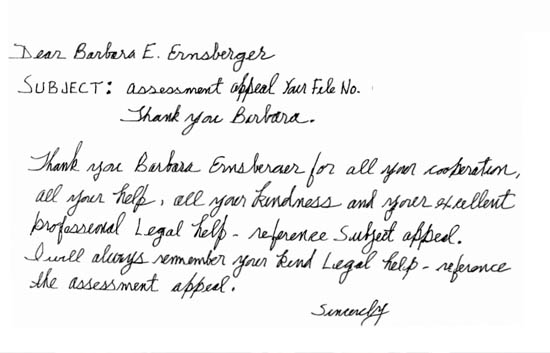 Dear Barbara E. Ernsberger
SUBJECT: assessment appeal Your File No.
Thank you Barbara.
Thank you Barbara Ernsberger for all your cooperation,
all your help, all your kindness and your excellent
professional Legal help - reference Subject appeal.
I will always remember your kind Legal help - reference
the assessment appeal.
Sincerely